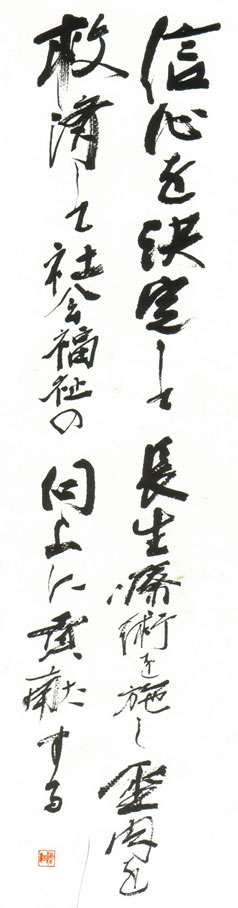 信心を決定して長生療術を施し霊肉を
救済して社会福祉の向上に貢献する